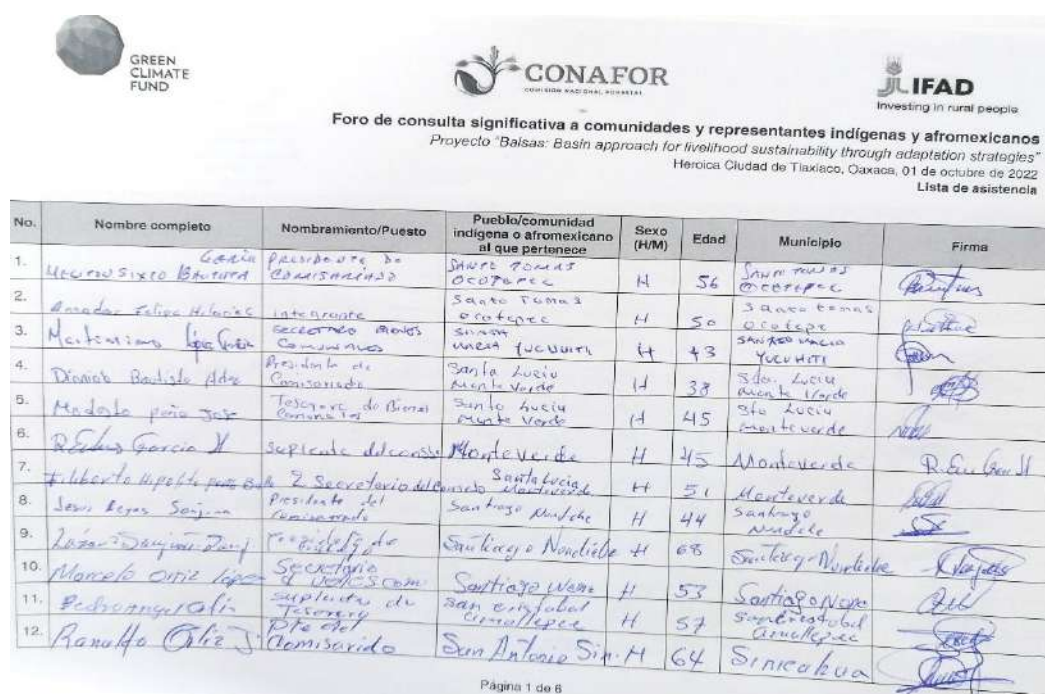 GREEN
CLIMATE
FUND
CONAFOR
COMISIÓN NACIONAL FORESTAL
IFAD
Investing in rural people
Foro de consulta significativa a comunidades y representantes indígenas y afromexicanos
Proyecto "Balsas: Basin approach for livelihood sustainability through adaptation strategies"
Heroica Ciudad de Tlaxiaco, Oaxaca, 01 de octubre de 2022
Lista de asistencia
No. Nombre completo Nombramiento/Puesto Pueblo/comunidad indígena o afromexicano al que pertenece Sexo (H/M) Edad Municipio Firma
1. Sixto Bautista García Presidente De Comisariado Santo Tomas Ocotepec H 56 Santo Tomas Ocotepec
2. Amador Felipe Hilario integrante Santo Tomas Ocotepec H 50 Santo tomas Ocotepe
3. López García Secretario Comunales María Yucuhiti H 43 Yucuhiti
4. Bautista Presidente de Comisariado Santa Lucia Monte Verde H 38 Sta. Lucia Monte Verde
5. Modesto peña Jose Tesorero de Bienes Comunales Santa Lucia Monte Verde H 45 Sta Lucia monte verde
6. García H Suplente del Monteverde H 45 Monteverde
7. Filiberto Hipolito 2 Secretario del Consejo Santa Lucia Monteverde H 51 Monteverde
8. Jesus Reyes Presidente del Comisariado Santiago H 44 Santiago
9. Santiago H 68 Santiago
10. Marcelo Ortiz López Secretario Santiago H 53 Santiago
11. Suplente de Tesorero San cristobal amoltepec H 57 San Cristobal amoltepec
12. Ranulfo Ortiz J. Pte del Comisarido San Antonio Sin. H 64 Sinicahua
Página 1 de 6